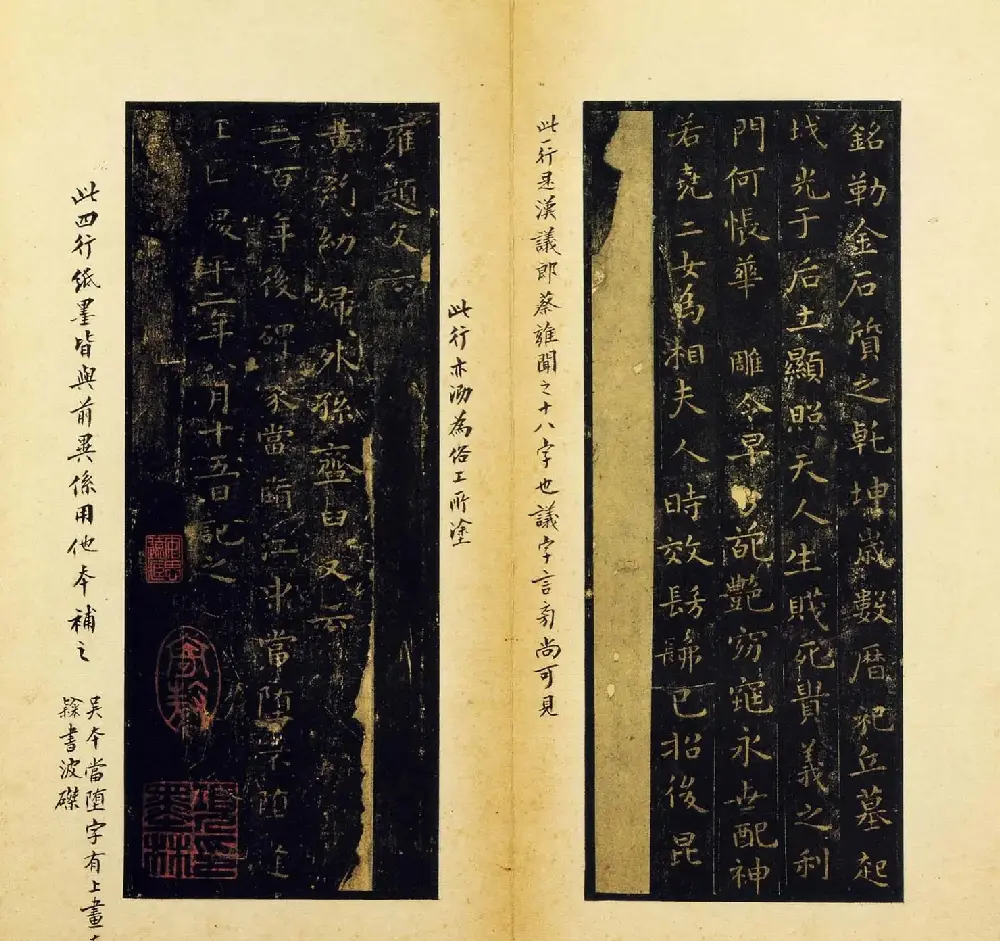 銘勒金石質之乹坤嵗數曆祀丘墓起
墳光于后土顯照天人生賤死貴義之利
門何悵華雕令早葩艷窈窕永世配神
若堯二女爲相夫人時效髣髴已招後昆
此一行是漢議郎蔡雝聞之十八字也議字言旁尚可見
此行亦泐為俗工所塗
雍題文云
黄絹幼婦外孫齏臼又云
三百年後碑冢當墮江中當墮不墮逢
王叵
年二年八月十五日記之
此四行紙墨皆與前異係用他本補之
吴本當墮字有上畫
書波磔